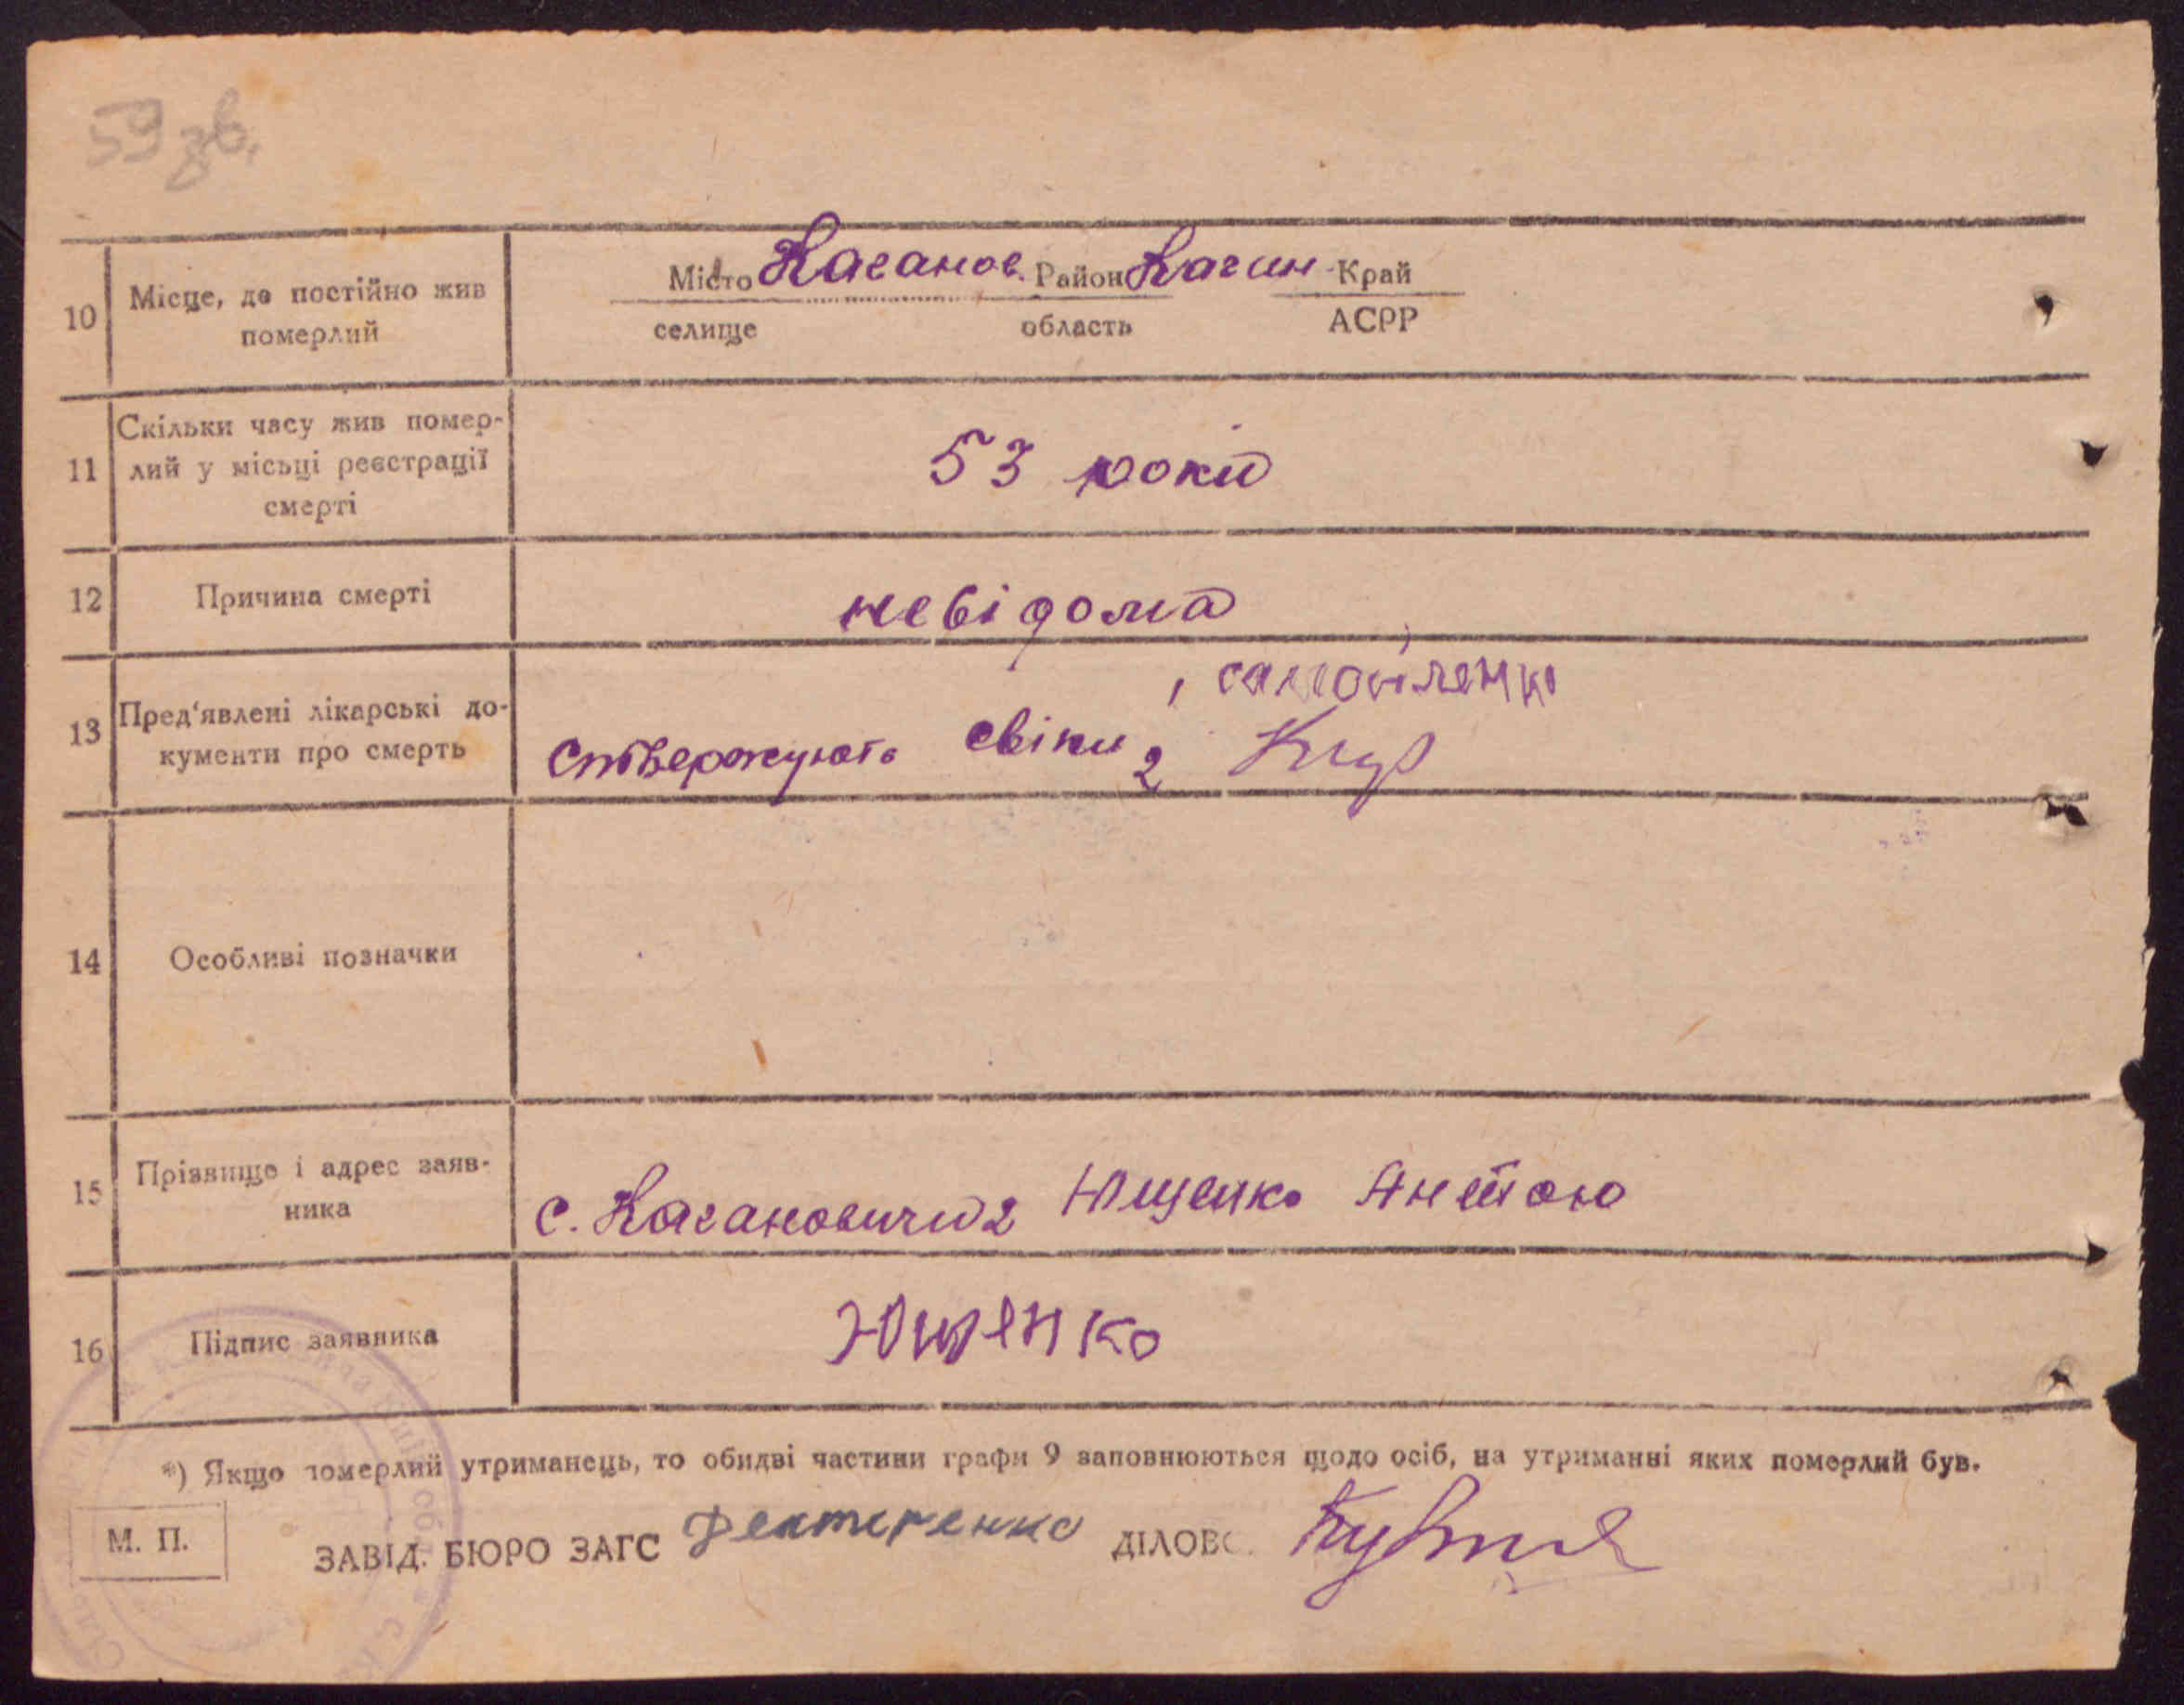 59 зв.
10 Місце, де постійно жив
померлий
Місто Каганов. Район Кагин Край
селище область АСРР
11 Скільки часу жив помер-
лий у місьці реєстрації
смерті
53 роки
12 Причина смерті
невідома
13 Пред'явлені лікарські до-
кументи про смерть
самойленко
стверджують свіки 2
14 Особливі позначки
15 Прізвище і адрес заяв-
ника
с. Кагановичи 2 Ющенко
16 Підпис заявника
Ющенко
*) Якщо померлий утриманець, то обидві частини графи 9 заповнюються щодо осіб, на утриманні яких померлий був.
М. П.
ЗАВІД. БЮРО ЗАГС ДІЛОВ